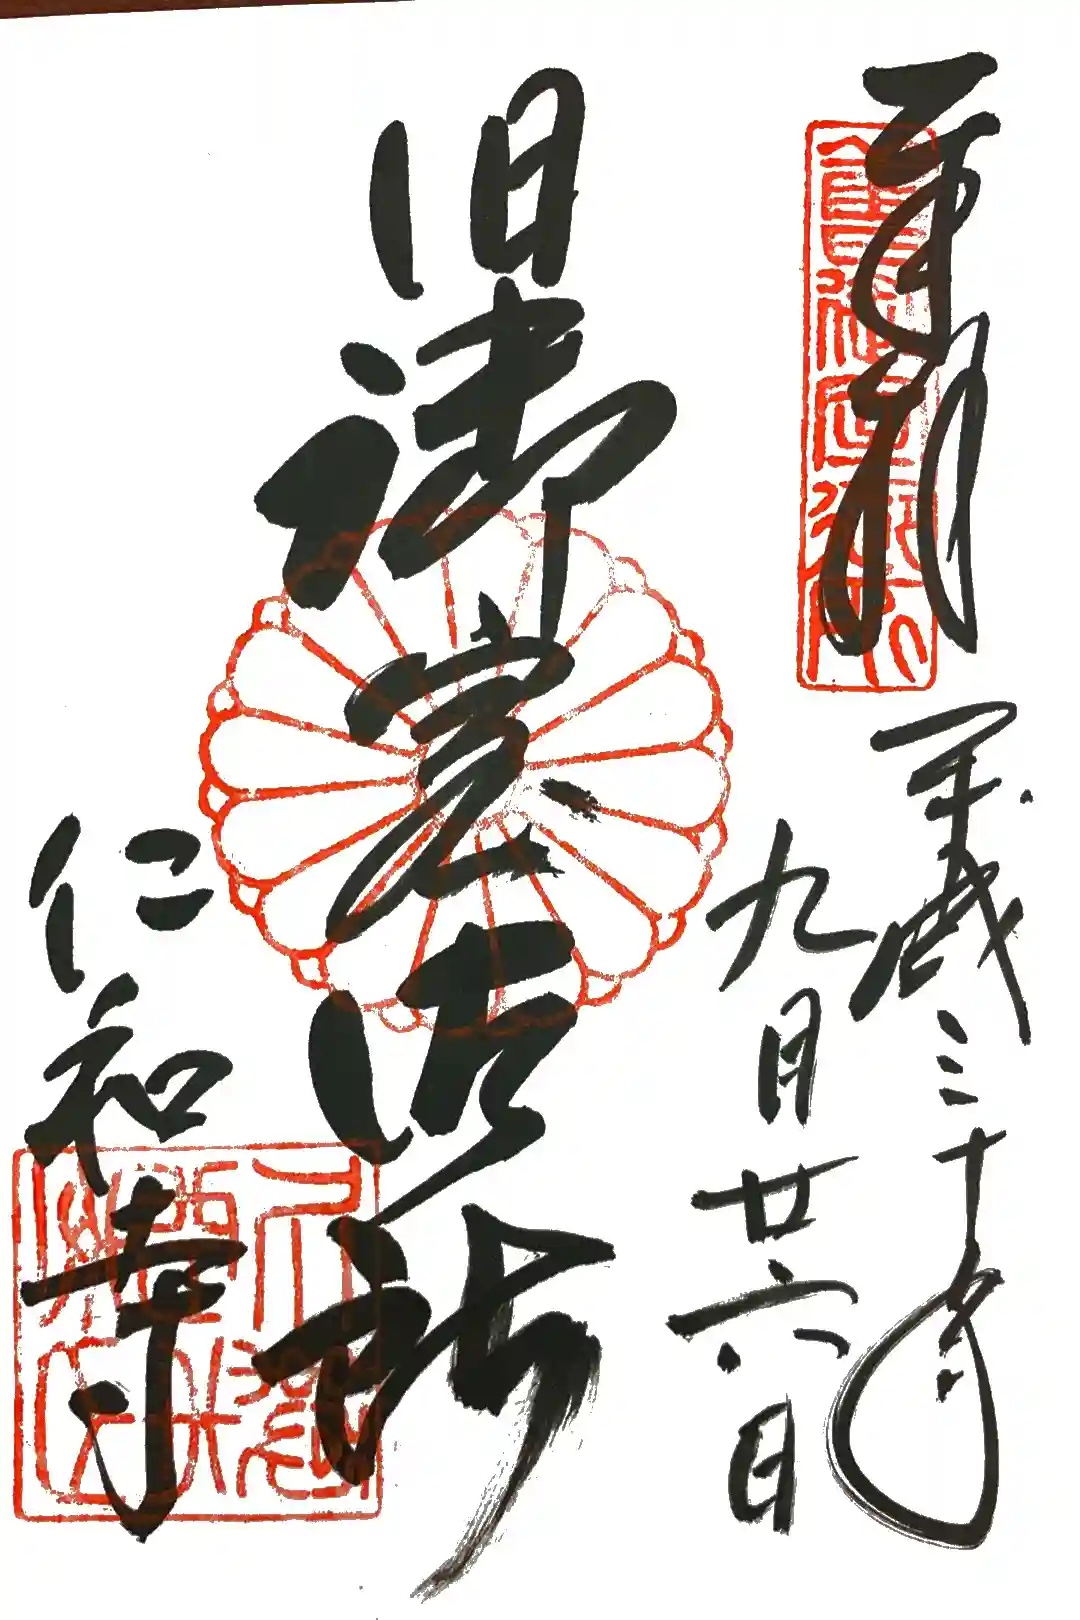 奉拝
平成三十年
九月廿六日
旧御室御所
仁和寺